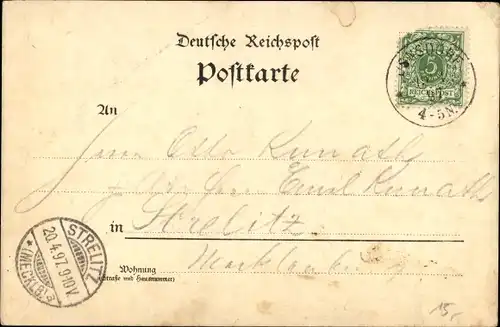 Deutsche Reichspost
Postkarte
5
REICHSPOST
4-5N.
An
Herrn Otto Kunath
Emil Kunath
in Strelitz
Mecklenburg
Wohnung
(Straße und Hausnummer)
STRELITZ
20.4.97.9-10V.
* (MECKLB) *
15,-